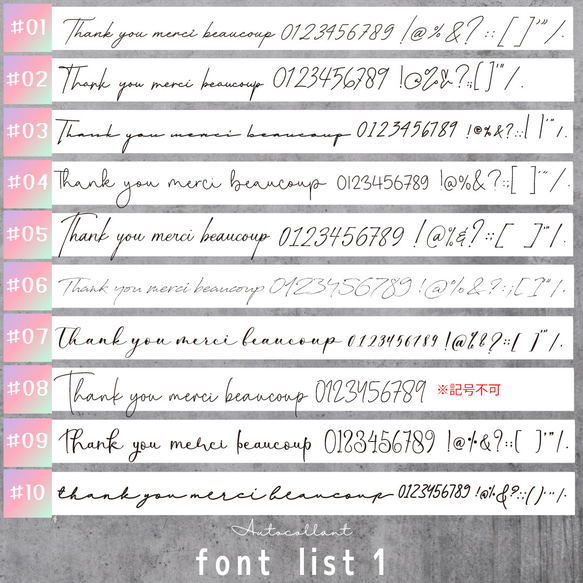 #01 Thank you merci beaucoup 0123456789 !@%&?::[ ]'"/.
#02 Thank you merci beaucoup 0123456789 !@%&?:;[ ]'"/.
#03 Thank you merci beaucoup 0123456789 !@%&?::[ ]'"/.
#04 Thank you merci beaucoup 0123456789 !@%&?:;[ ]'"/.
#05 Thank you merci beaucoup 0123456789 !@%&?::[ ]'"/.
#06 Thank you merci beaucoup 0123456789 !@%&?:;[ ]'"/.
#07 Thank you merci beaucoup 0123456789 !@%&?::[ ]'"/.
#08 Thank you merci beaucoup 0123456789 ※記号不可
#09 Thank you merci beaucoup 0123456789 !@%&?::[ ]'"/.
#10 thank you merci beaucoup 0123456789 !@%&?::( )'"/.
Autocollant
font list 1